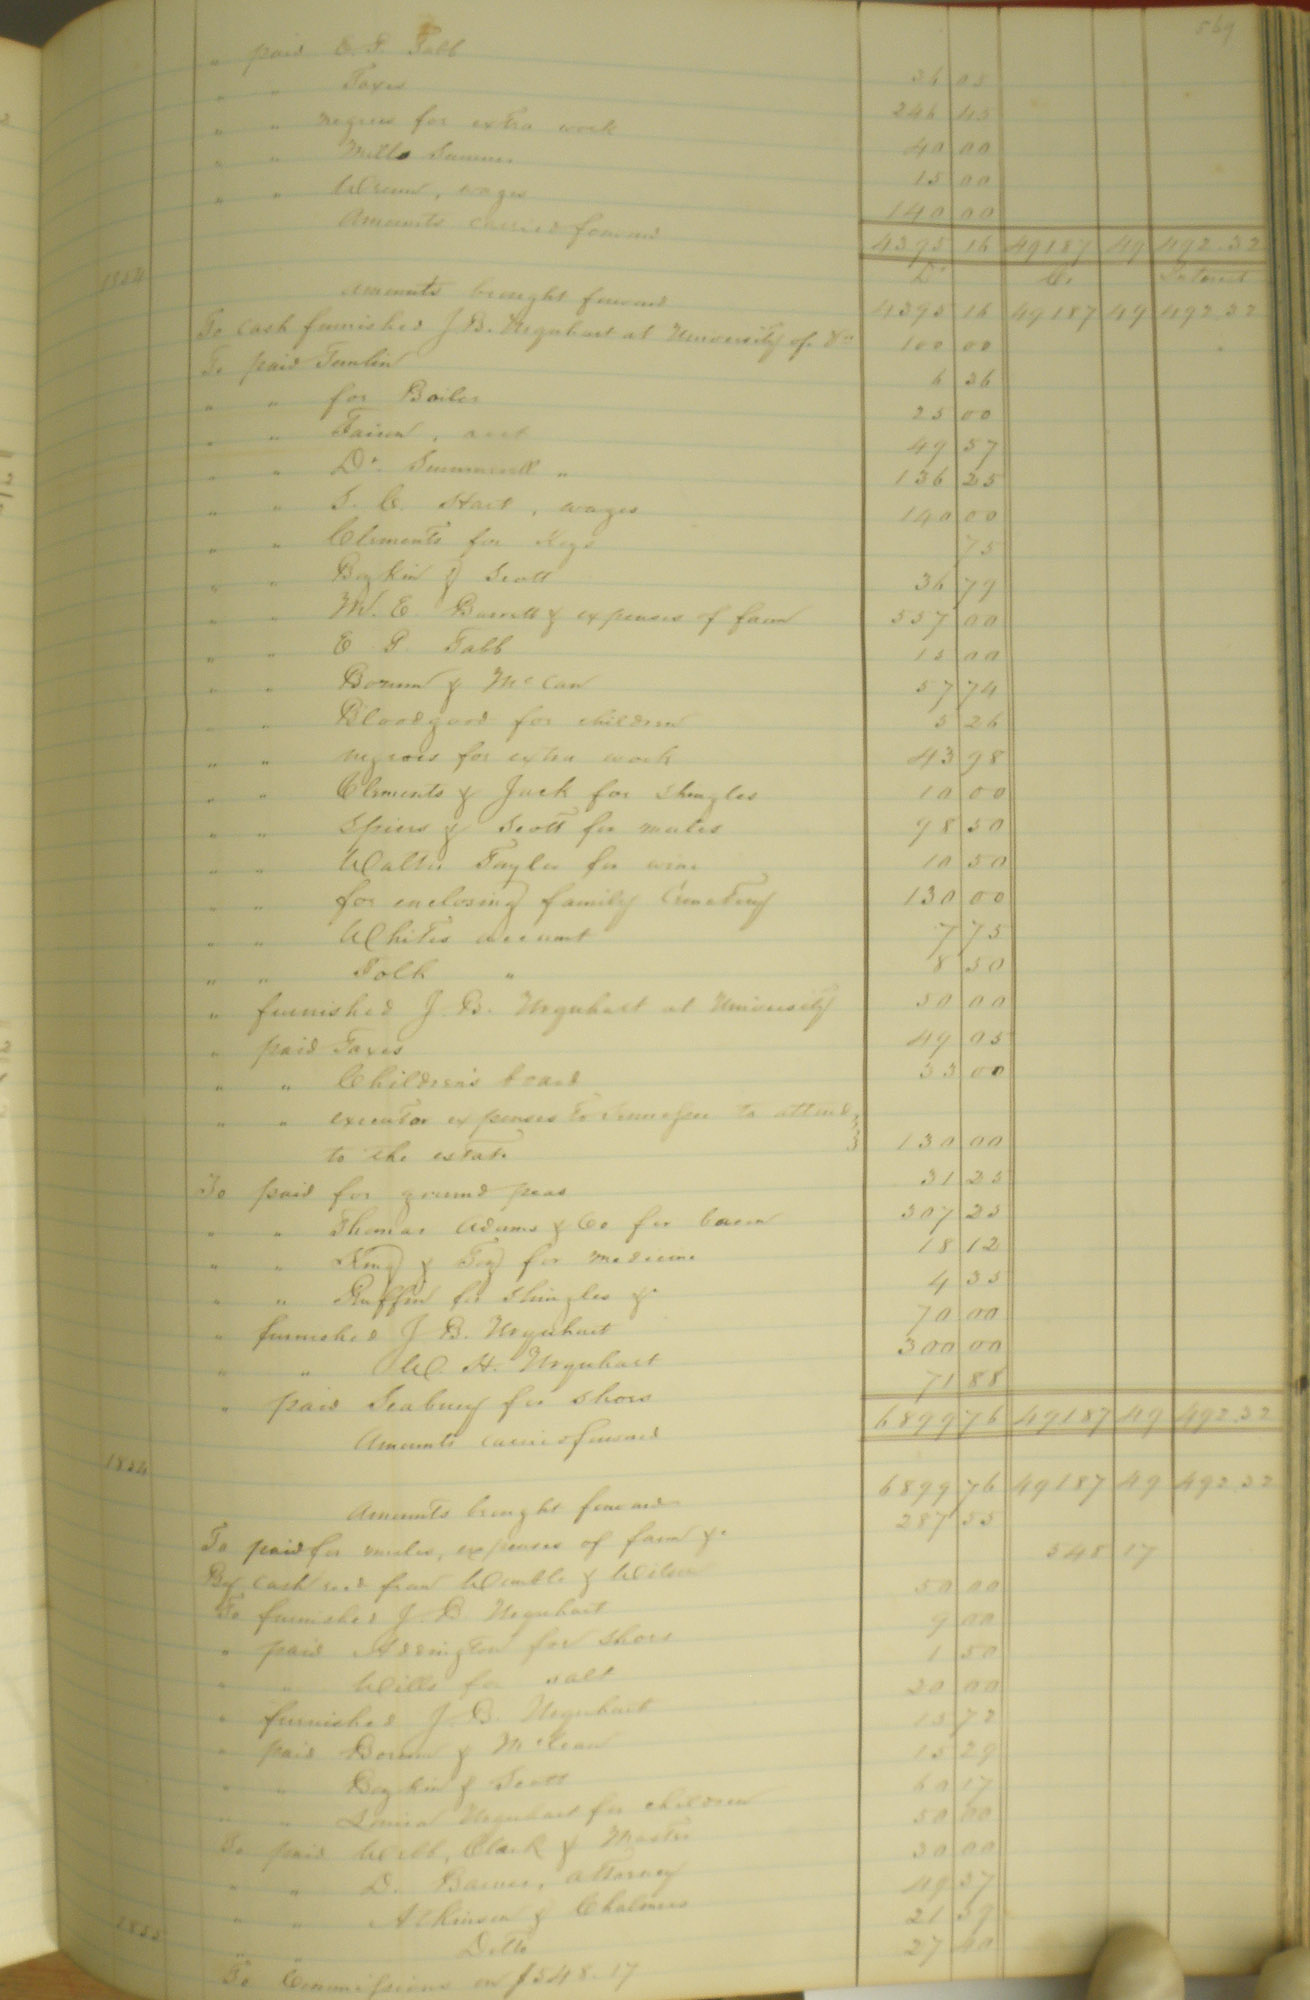 569
" paid E. P. Tabb 36 05
" " Taxes 246 45
" " negroes for extra work 40 00
" " Mills Sumner 15 00
" " Wrenn, wages 140 00
Amounts carried forward 4395 16 49187 49 492.32
1854 Dr Cr Interest
Amounts brought forward 4395 16 49187 49 492.32
To cash furnished J. B. Urquhart at University of Va 100 00
To paid Tomlin 6 36
" " for Boiler 25 00
" " Faison, acct 49 57
" " Dr. Summerell " 136 25
" " S. C. Hart, wages 140 00
" " Clements for Kegs 75
" " Boykin & Scott 36 79
" " W. E. Barrett & expenses of farm 557 00
" " E. P. Tabb 15 00
" " Borum & McCan 57 74
" " Bloodgood for children 5 26
" " negroes for extra work 43 98
" " Clements & Jack for shingles 10 00
" " Spiers & Scott for mules 98 50
" " Walter Taylor for wine 10 50
" " for enclosing family Cemetery 130 00
" " Whites account 7 75
" " Folk " 8 50
" furnished J. B. Urquhart at University 50 00
" paid Taxes 49 05
" " Children's board 33 00
" " executor expenses to Tennessee to attend
to the estate 130 00
To paid for ground peas 31 25
" " Thomas Adams & Co for bacon 307 25
" " King & Toy for medicine 18 12
" " Ruffin for shingles &c 4 35
" furnished J. B. Urquhart 70 00
" " W. H. Urquhart 300 00
" paid Seabury for shoes 71 88
Amounts carried forward 6899 76 49187 49 492.32
1854
Amounts brought forward 6899 76 49187 49 492.32
To paid for mules, expenses of farm &c 287 55
By cash recd from Womble & Wilson 548 17
To furnished J. B. Urquhart 50 00
" paid Addington for shoes 9 00
" " Wills for salt 1 50
" furnished J. B. Urquhart 20 00
" paid Borum & McLean 15 72
" " Boykin & Scott 15 29
" " Louisa Urquhart for children 60 17
To paid Webb, Clark & Master 50 00
" " D. Barnes, attorney 30 00
" " Atkinson & Chalmers 49 37
1855 " " Ditto 21 59
To Commissions on $548.17 27 40